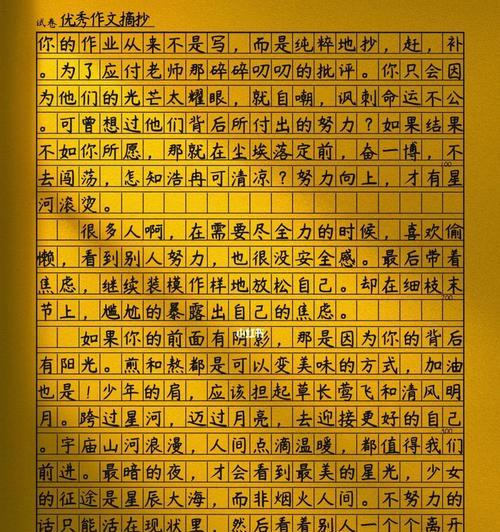 试卷 优秀作文摘抄
你的作业从来不是写，而是纯粹地抄，赶，补
。为了应付老师那碎碎叨叨的批评。你只会因
为他们的光芒太耀眼，就自嘲，讽刺命运不公
。可曾想过他们背后所付出的努力？如果结果
不如你所愿，那就在尘埃落定前，奋一博，不
去闯荡，怎知浩冉可清凉？努力向上，才有星
河滚烫。
很多人啊，在需要尽全力的时候，喜欢偷
懒，看到别人努力，也很没安全感。最后带着
焦虑，继续装模作样地放松自己。却在细枝末
节上，尴尬的暴露出自己的焦虑。
如果你的前面有阴影，那是因为你的背后
有阳光。煎和熬都是可以变美味的方式，加油
也是！少年的肩，应该担起草长莺飞和清风明
月。跨过星河，迈过月亮，去迎接更好的自己
。宇庙山河浪漫，人间点滴温暖，都值得我们
前进。最暗的夜，才会看到最美的星光，少女
的征途是星辰大海，而非烟火人间。不努力的
话只能活在现状里，然后看着别人一个个离开